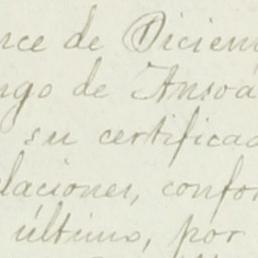 nce de Diciem
ngo de Ansoa
su certificad
elaciones, confor
último, por